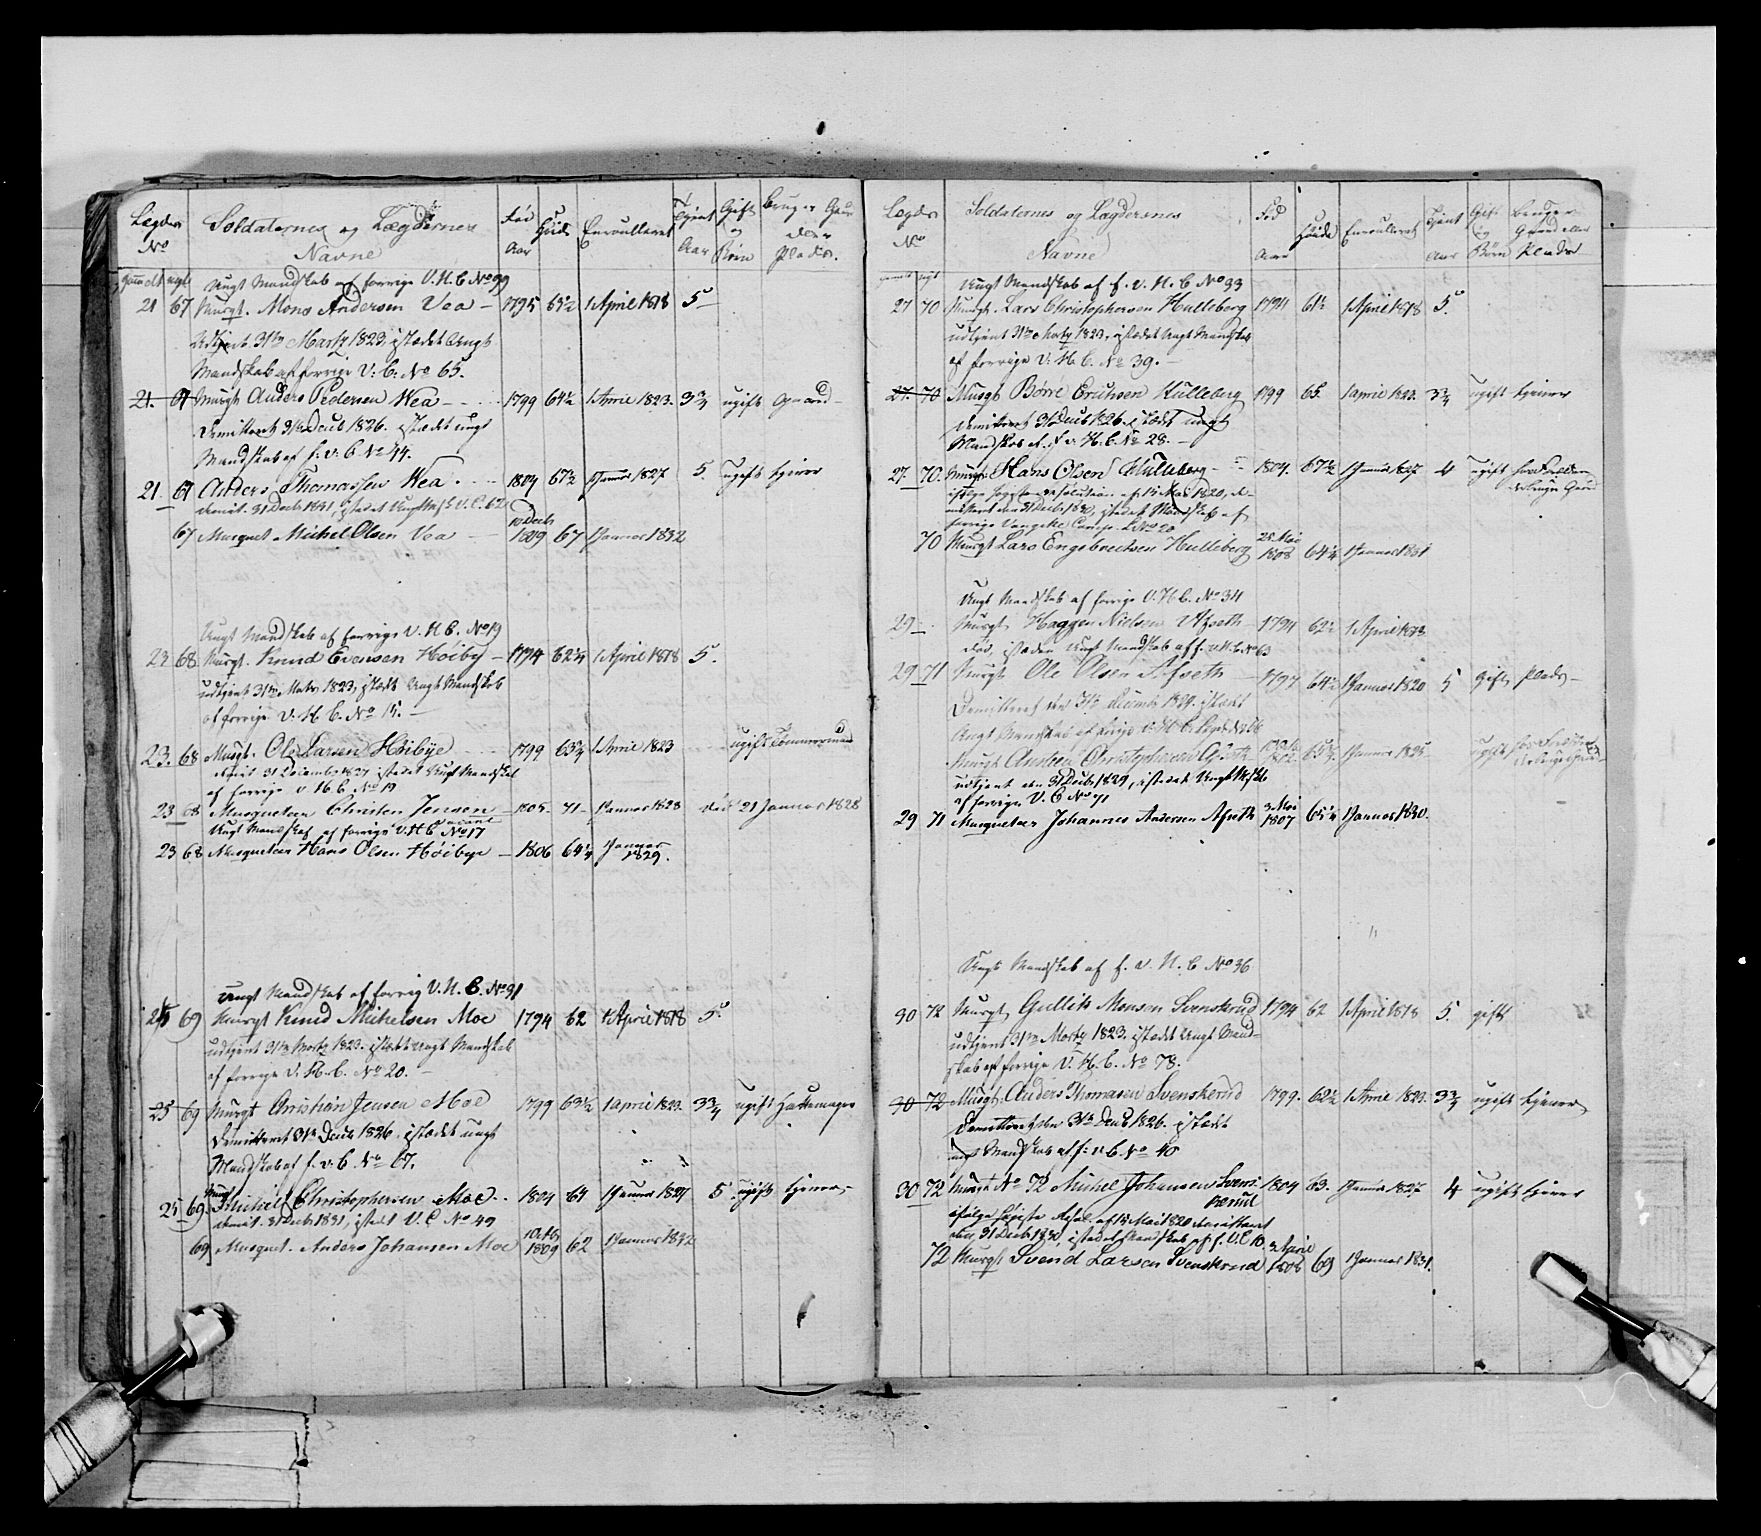 Lægdes Soldaternes og Lægdernes Fød Høide Enroulleret Tjent Gift Bruger Gaard
No Navne Aar Aar og Børn eller Plads.
gammelt nyt Ungt Mandskab af forrige V. H. C. No 99
21 67 Musqt. Mons Andersen Vea – 1795 63½ 1 April 1818 5 –
Udtjent 31te Martz 1823, istædet Ungt
Mandskab af forrige V: C: No 65.
21. 67 Musqt Anders Pedersen Wea – 1799 64½ 1 April 1823. 3¾ ugift Gaard –
Demitteret 31te Decbr 1826. istædet ungt
Mandskab af f. v. C No 44.
21. 67 Anders Thomassen Wea. 1804 67½ 1 Januar 1827 5. ugift tjener
demit. 31 Decbr 1831, istædet Ungt Msk V. C. 62
67 Musquet Michel Olsen Vea – 10 Decb 1809 67 1 Januar 1832
Ungt Mandskab af forrige V. H C. No 19
23 68. Musqt. Knud Evensen Høiby – 1794 62¼ 1 April 1818 5.
udtjent 31te Martz 1823, istædt Ungt Mandskab
af forrige V. H C. No 15. –
23. 68 Musqt. Ole Larsen Høibye 1799 63¾ 1 April 1823 ugift Tømmermand
demit. 31 December 1827 istædet Ungt Mandskab
af forrige v. H. C. No 19
23 68 Musqueteer Christen Jensen 1805. 71 – 1 Januar 1828 død 21 Januar 1828
Ungt Mandskab af forrige V. H C No 17
23 68 Musqueteer Hans Olsen Høibye – 1806 64¼ 1 Januar 1829.
Ungt Mandskab af forrig V. H. C. No 91
25 69 Musqt Knud Michelsen Moe 1794 62 1 April 1818 5.
udtjent 31te Martz 1823. istædt Ungt Mandskab
af forrige V. H. C. No 20. –
25 69 Musqt Christian Jensen Moe 1799 63½ 1 April 1823. 3¾ ugift Hattemager
Demitteret 31te Decbr 1826. istædet ungt
Mandskab af f. v. C. No 67.
25 69. Musqt Michel Christophersen Moe. 1804 64 1 Januar 1827 5 ugift tjener –
demit. 31 Decbr 1831, istædt V. C No 49
69 Musquet. Anders Johansen Moe 1809 62 1 Januar 1832
Lægdes Soldaternes og Lægdernes Fød Høide Enroulleret Tjent Gift Bruger
No Navne Aar Aar og Børn Gaard eller Plads
Ungt Mandskab af f. v. H. C No 33
27 70 Musqt. Lars Christophersen Hulleberg 1794 61½ 1 April 1818 5.
udtjent 31te Martz 1823. istædet Ungt Mandskab
af forrige V. H. C. No 39. –
27. 70 Musqt Børre Erichsen Hulleberg 1799 65. 1 April 1823. 3¾ ugift tjener
Demitteret 31te Decbr 1826. istædt ungt
Mandskab af f v. H. C. No 28. –
27. 70. Musqt. Hans Olsen Hulleberg 1804. 67½ 1 Januar 1827 4 ugift
ifølge høieste resolution af 15 Mai 1820, demitteret
den 31 Decbr 1830, istædet Mandskab af
forrige Vangske Comp. No 20
70 Musqt Lars Engebretsen Hulleberg 1808 64¼ 1 Januar 1831
Ungt Mandskab af forrige V. H C. No 34
29 – Musqt. Haggen Nielsen Afseth 1794 62½ 1 April 1818
død, istæden Ungt Mandskab af f. v. H. C No 63
29 71 Musqt Ole Olsen Afseth 1797 64½ 1 Januar 1820 5 Gift Plads –
Demitteret den 31te December 1824. istædt
Ungt Mandskab af forrige v. H C.
Musqt Anders Christophersen Afseth 1802. 65¾ 1 Januar 1825 ugift
udtjent den 31 Decbr 1829, istædet Ungt Mskb
af forrige V. C No 71
29 71 Musqueteer Johannes Andersen Afseth 3 Mai 1807 65¼ 1 Januar 1830.
Ungt Mandskab af f. v. H. C No 36
30 72 Musqt. Gullik Monsen Svenskrud 1794 62 1 April 1818 5. gift
udtjent 31te Martz 1823. istædet Ungt Mandskab
af forrige V. H. C. No 78. –
30 72 Musqt. Anders Thomasen Svenskerud 1799. 62½ 1 April 1823. 3¾ ugift tjener
Demitteret den 31te Decbr 1826. istædt
ungt Mandskab af f: v C. No 40
30 72 Musqt No 72 Michel Johansen Svenskerud 1804 63. 1 Januar 1827 4 ugift tjener
ifølge høieste Resol. af 15 Mai 1820 demitteret
den 31 Decbr 1830, istædet Mandskab af f. V. C 10.
72 Musqt Svend Larsen Svenskrud 3 April 1808 69 1 Januar 1831.